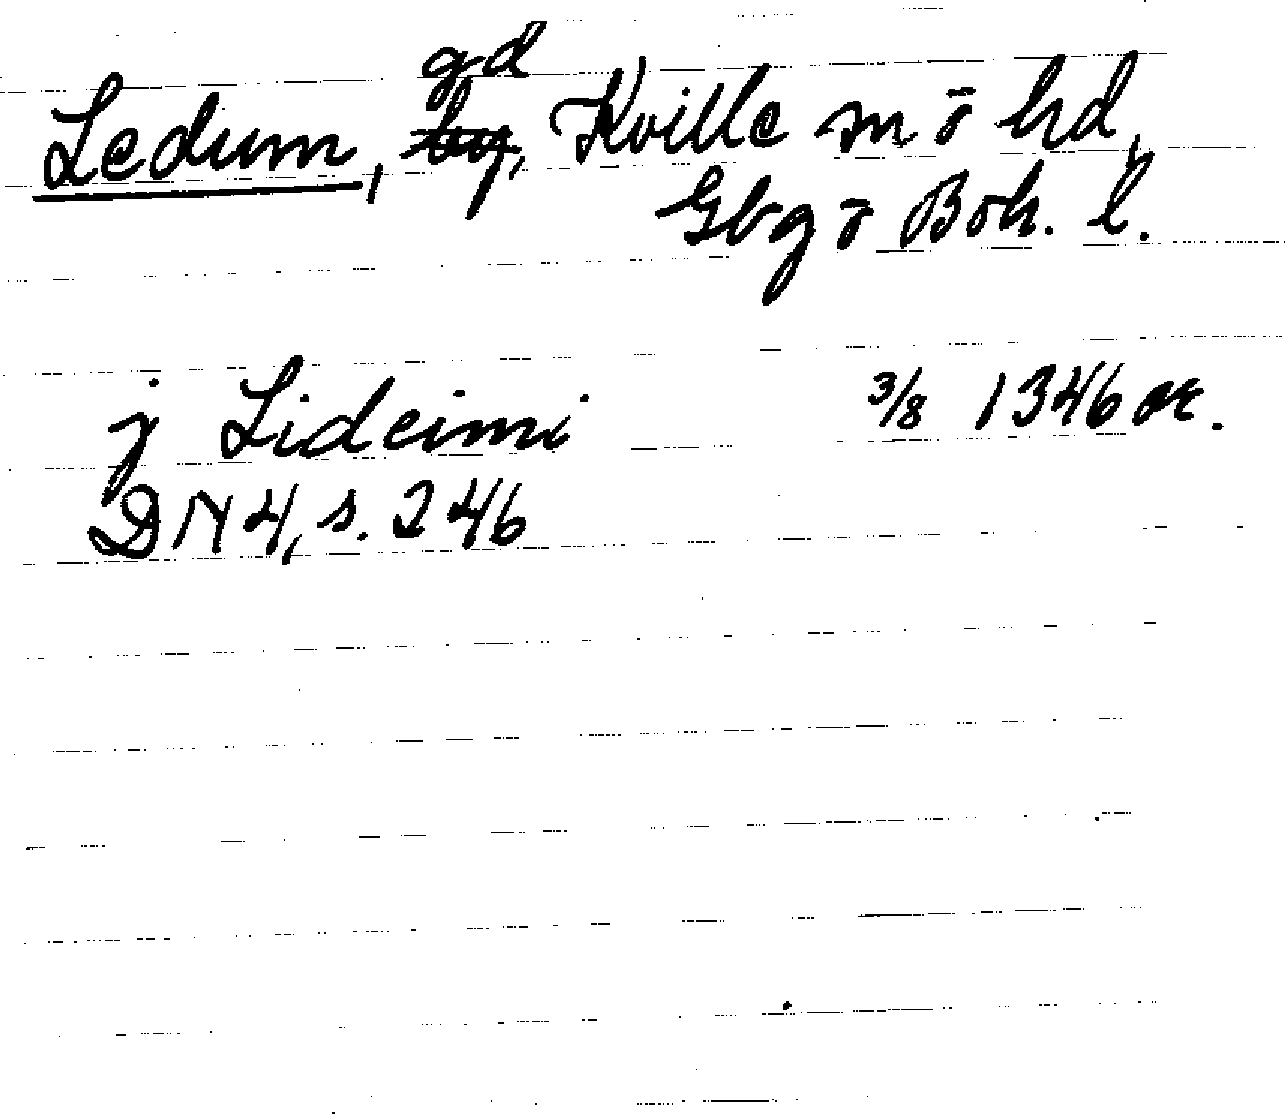 Ledum, gd by, Kville sn o hd,
Gbg o Boh. l.
j Lideimi 3/8 1346 or.
DN 4, s. 246